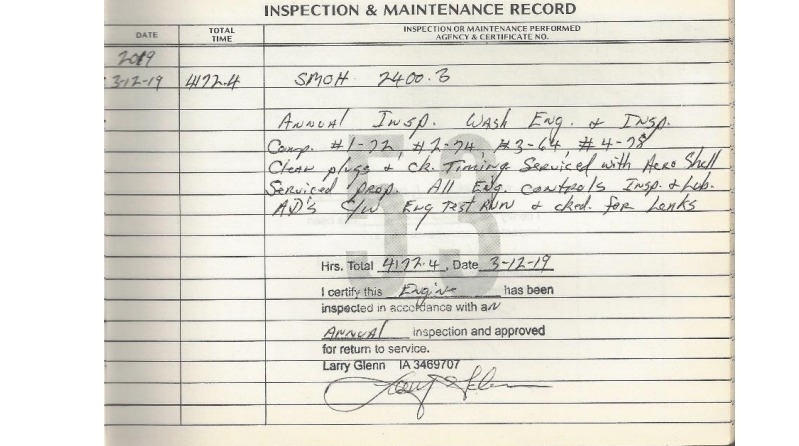 INSPECTION & MAINTENANCE RECORD
DATE TOTAL TIME INSPECTION OR MAINTENANCE PERFORMED AGENCY & CERTIFICATE NO.
2019
3-12-19 4172.4 SMOH 2400.3
Annual Insp. Wash Eng. & Insp.
Comp. #1-72, #2-74, #3-64, #4-78
Clean plugs & ck. Timing. Serviced with Aero Shell
Serviced prop. All Eng. controls Insp. & Lub.
AD's C/W Eng Test RUN & cked. for Leaks
53
Hrs. Total 4172.4, Date 3-12-19
I certify this Engine has been
inspected in accordance with an
Annual inspection and approved
for return to service.
Larry Glenn IA 3469707